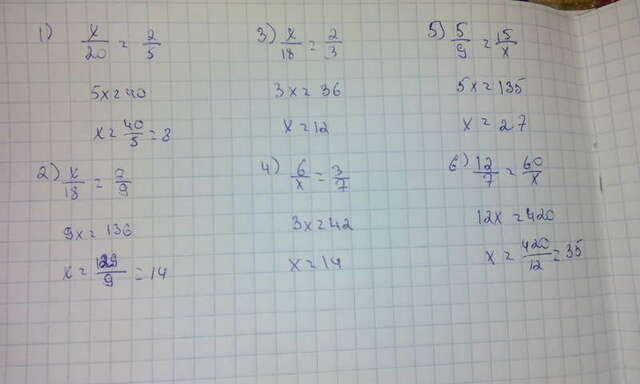 1) x/20 = 2/5
5x = 40
x = 40/5 = 8
2) x/18 = 7/9
9x = 136
x = /9 = 14
3) x/18 = 2/3
3x = 36
x = 12
4) 6/x = 3/7
3x = 42
x = 14
5) 5/9 = 15/x
5x = 135
x = 27
6) 12/7 = 60/x
12x = 420
x = 420/12 = 35